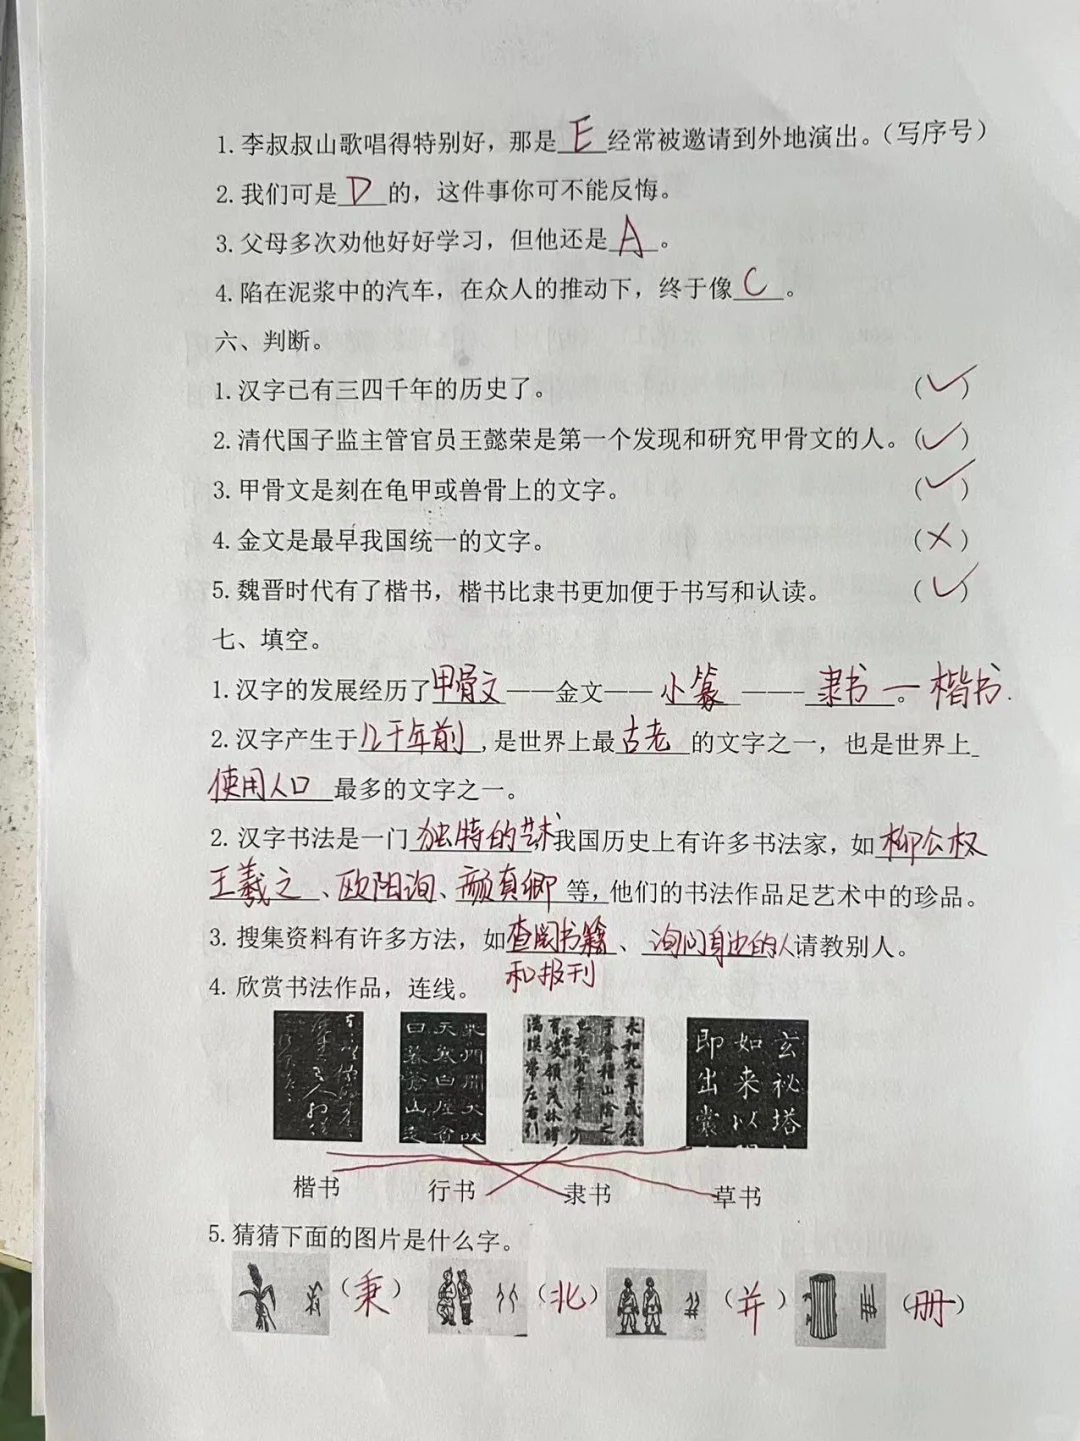 1.李叔叔山歌唱得特别好，那是E经常被邀请到外地演出。（写序号）
2.我们可是D的，这件事你可不能反悔。
3.父母多次劝他好好学习，但他还是A。
4.陷在泥浆中的汽车，在众人的推动下，终于像C。
六、判断。
1.汉字已有三四千年的历史了。（✓）
2.清代国子监主管官员王懿荣是第一个发现和研究甲骨文的人。（✓）
3.甲骨文是刻在龟甲或兽骨上的文字。（✓）
4.金文是最早我国统一的文字。（×）
5.魏晋时代有了楷书，楷书比隶书更加便于书写和认读。（✓）
七、填空。
1.汉字的发展经历了甲骨文——金文——小篆——–隶书。—楷书.
2.汉字产生于几千年前,是世界上最古老的文字之一，也是世界上
使用人口最多的文字之一。
2.汉字书法是一门独特的艺术，我国历史上有许多书法家，如柳公权
王羲之、欧阳询、颜真卿等,他们的书法作品足艺术中的珍品。
3.搜集资料有许多方法，如查阅书籍、询问身边的人请教别人。
和报刊
4.欣赏书法作品，连线。
玄秘塔
如来以
即出裳
永和九年岁在
于会稽山阴之
有峻领茂林修
满暎带左右引
楷书 行书 隶书 草书
5.猜猜下面的图片是什么字。
（秉）（北）（并）（册）